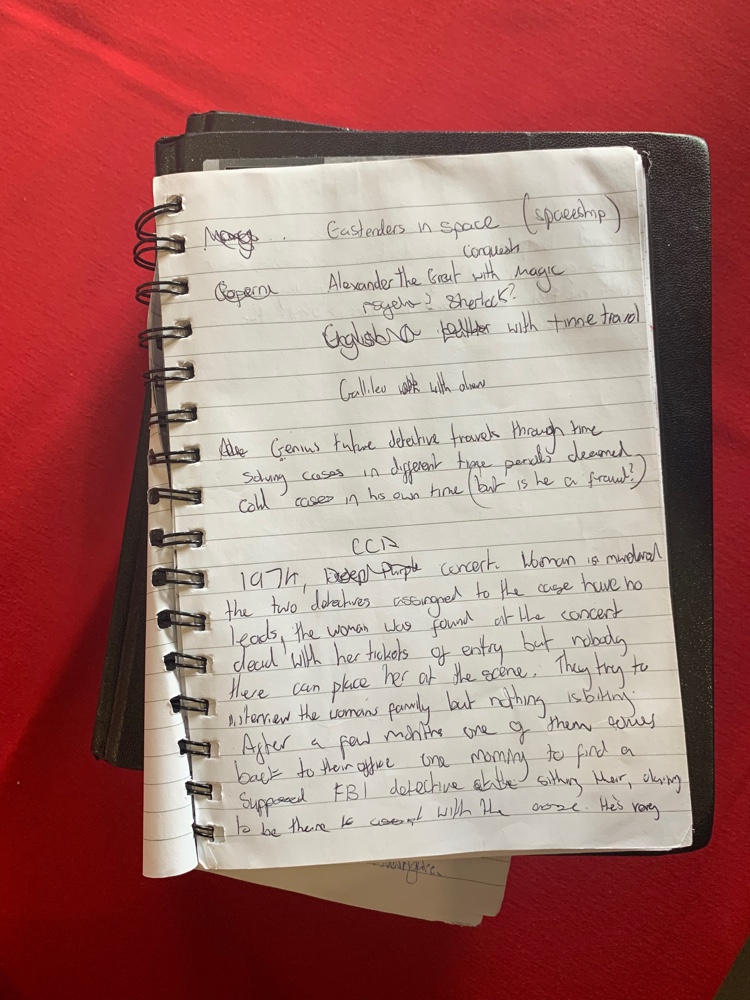 Eastenders in space (spaceship)
conquests
Alexander the Great with Magic
psychic? Sherlock?
with time travel
Gallileo with alien
Genius future detective travels through time
solving cases in different time periods deemed
cold cases in his own time (but is he a fraud?)
1974, Deep Purple concert. Woman is murdered
the two detectives assigned to the case have no
leads, the woman was found at the concert
dead with her tickets of entry but nobody
there can place her at the scene. They try to
interview the womans family but nothing is biting.
After a few months one of them comes
back to their office one morning to find a
supposed FBI detective sitting their, claiming
to be there to assist with the case. He's very